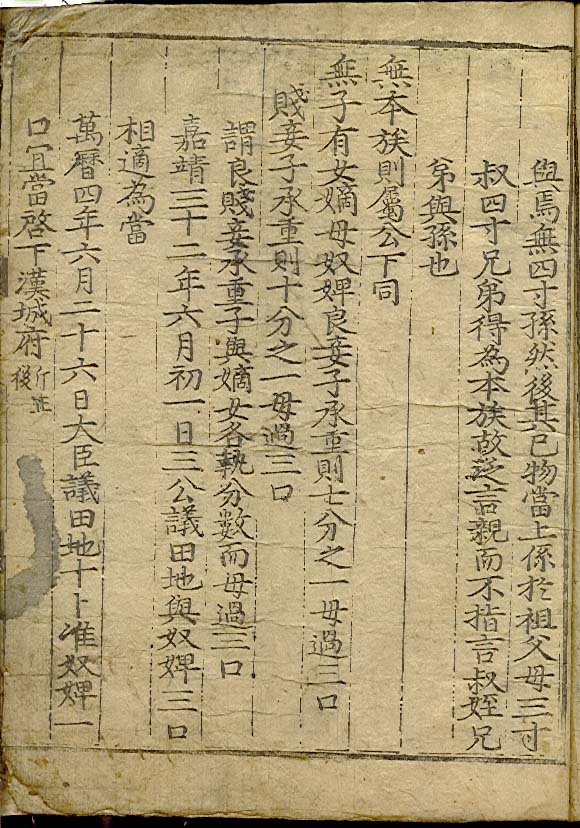 與焉無四寸孫然後其己物當上係於祖父母三寸
叔四寸兄弟得為本族故泛言親而不指言叔姪兄
弟與孫也
無本族則屬公下同
無子有女嫡母奴婢良妾子承重則七分之一毋過三口
賤妾子承重則十分之一毋過三口
謂良賤妾承重子與嫡女各執分數而毋過三口
嘉靖三十二年六月初一日三公議田地與奴婢三口
相適為當
萬曆四年六月二十六日大臣議田地十卜准奴婢一
口宜當啓下漢城府